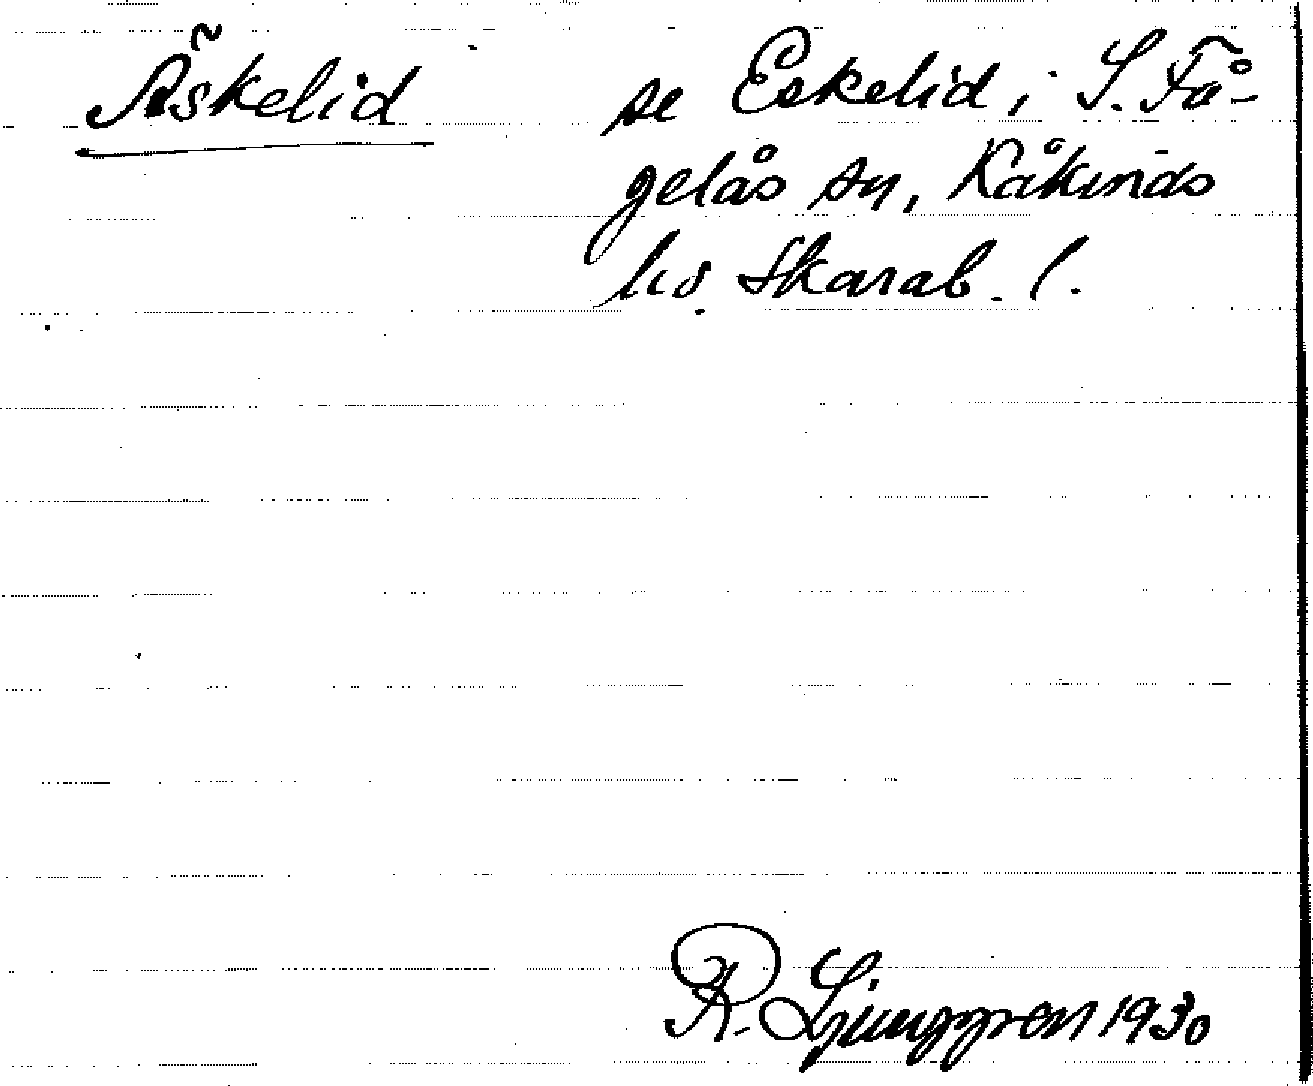 Äskelid se Eskelid i S. Få-
gelås sn, Kåkinds
hd. Skarab. l.
R. Ljunggren 1930